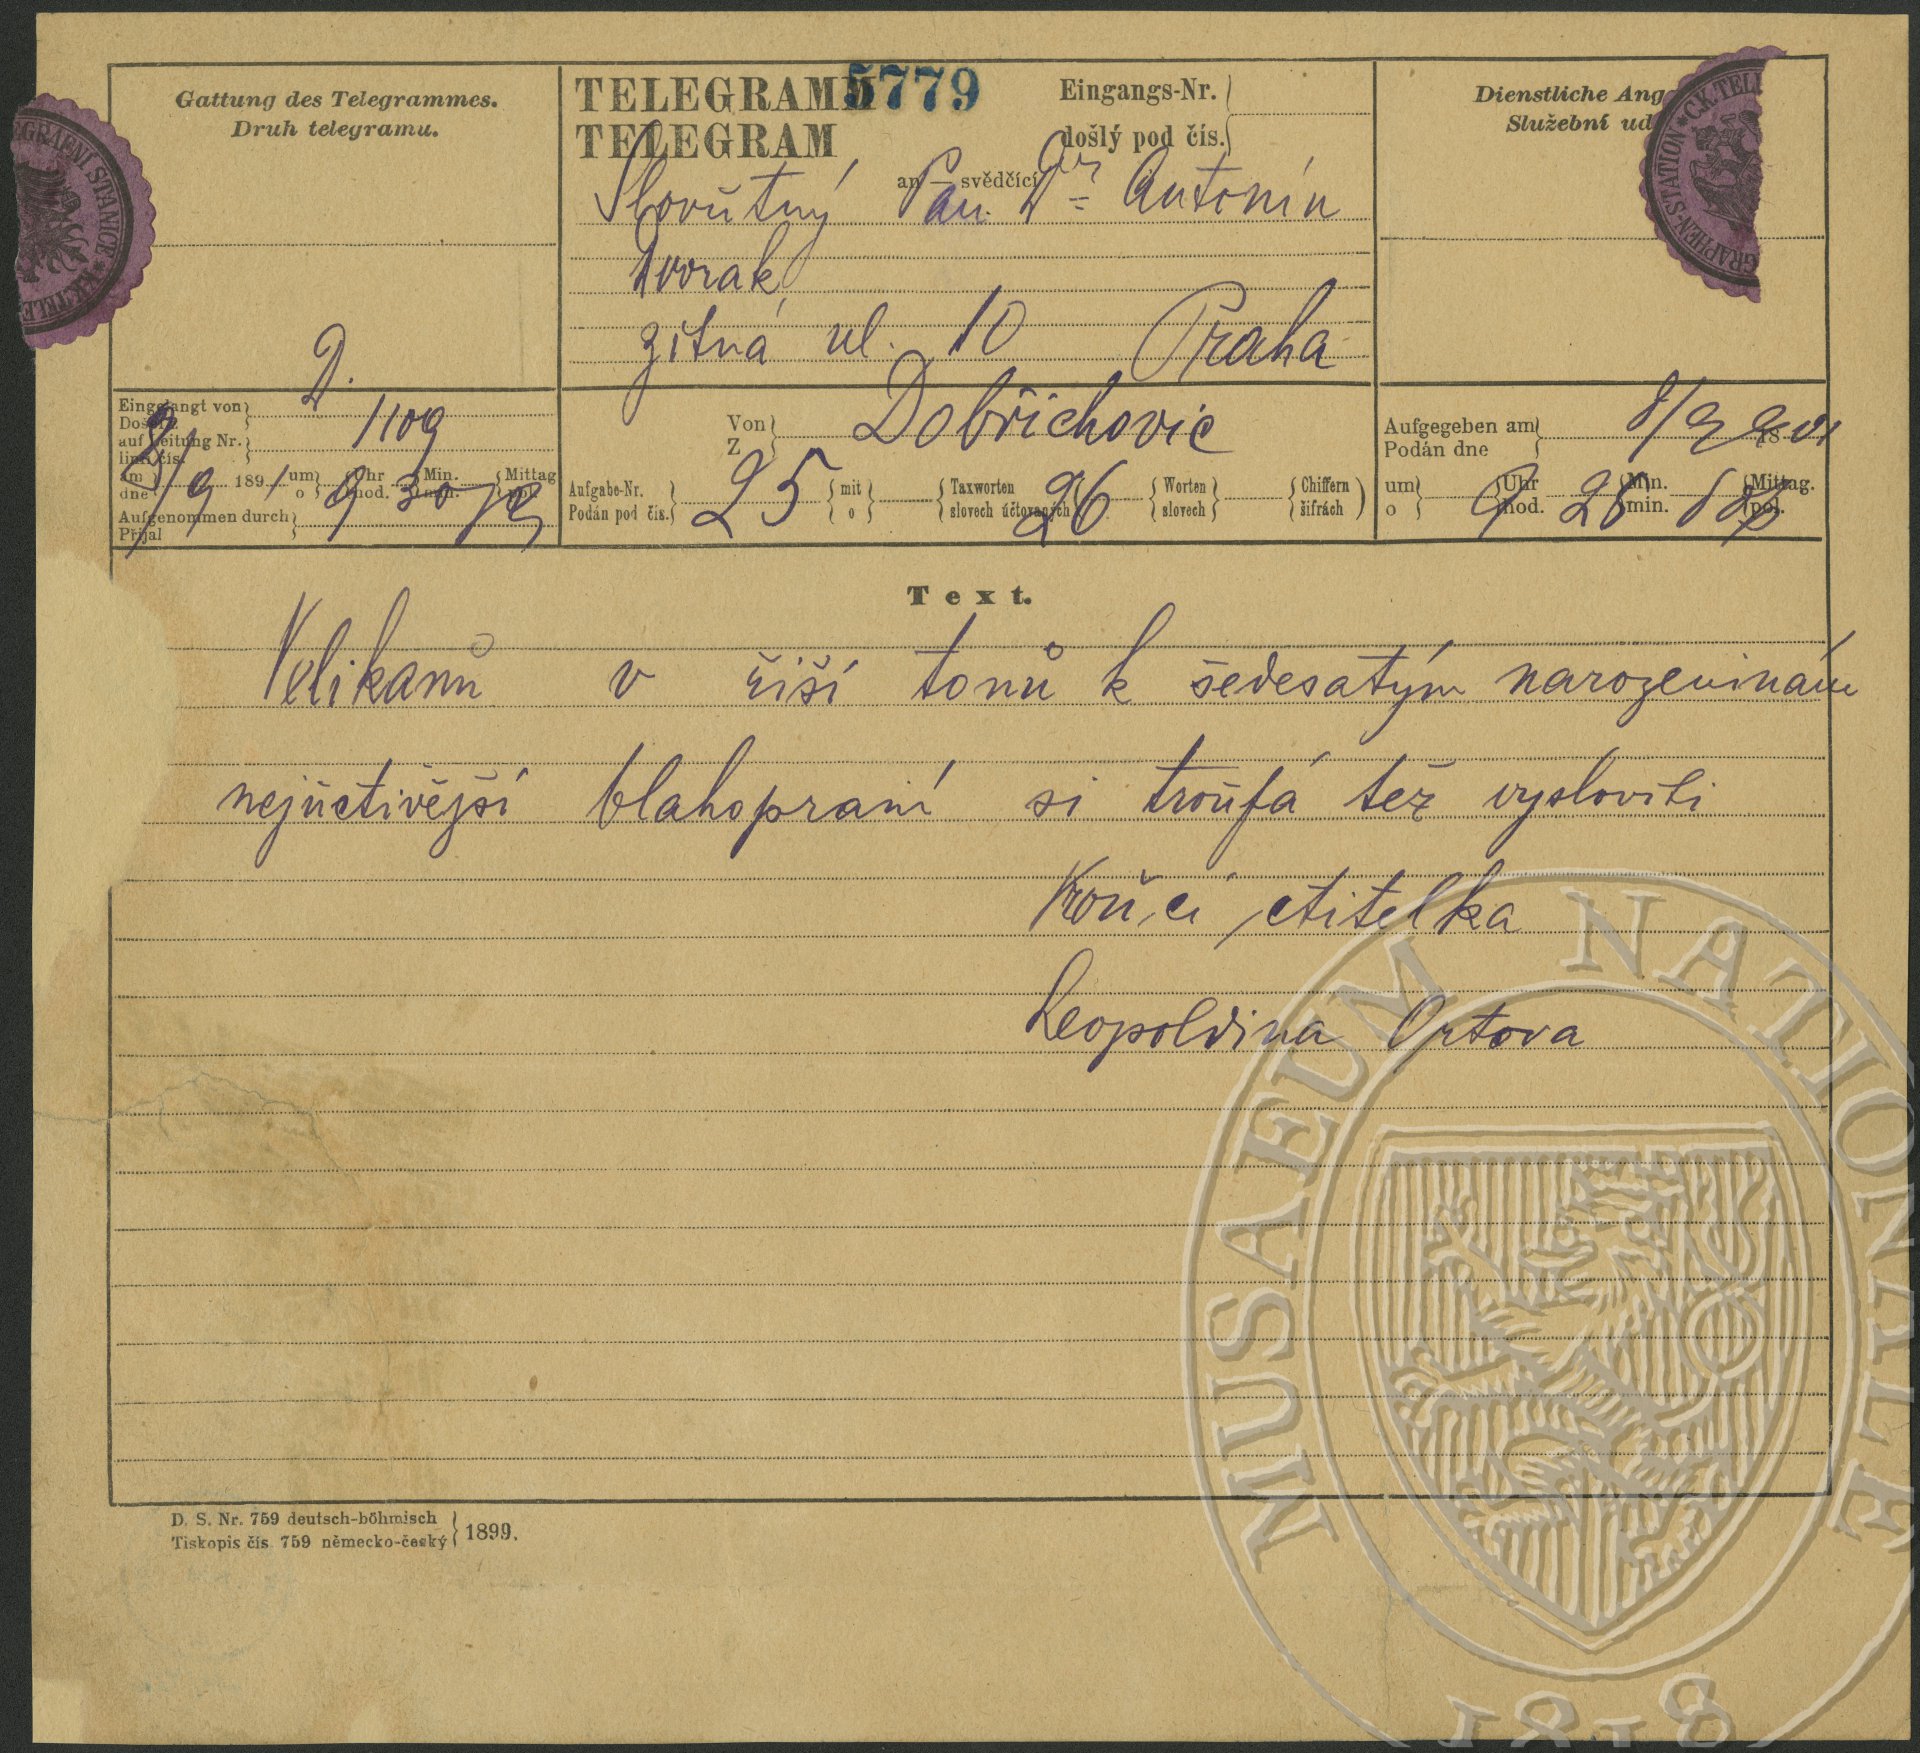 Gattung des Telegrammes.
Druh telegramu.
TELEGRAMM 5779
TELEGRAM
Eingangs-Nr.
došlý pod čís.
Dienstliche Ang
Služební úd
an — svědčící
Slovutný Pan Dr Antonín
Dvorak
žitná ul. 10 Praha
D.
Eingelangt von
Došel z
auf Leitung Nr.
linii čís.
1109
am
dne
8/9 1891 um
o
9 Uhr
hod.
30 Min.
min.
Mittag
pol.
Aufgenommen durch
Přijal
Von
Z
Dobřichovic
Aufgabe-Nr.
Podán pod čís.
25
mit
o
Taxworten
slovech účtovaných
26
Worten
slovech
Chiffern
šifrách
Aufgegeben am
Podán dne
8/9 1901
um
o
9 Uhr
hod.
Min.
min.
Mittag.
pol.
Text.
Velikanů v říši tonů k šedesatým narozeninám
nejúctivější blahopraní si troufá též vysloviti
Vroucí ctitelka
Leopoldina Ortova
D. S. Nr. 759 deutsch-böhmisch
Tiskopis čís. 759 německo-český
1899.
GRAFNI STANICE * K.K. TELE
GRAPHEN-STATION * C.K. TELE
MUSAEUM NATIONALE
1818